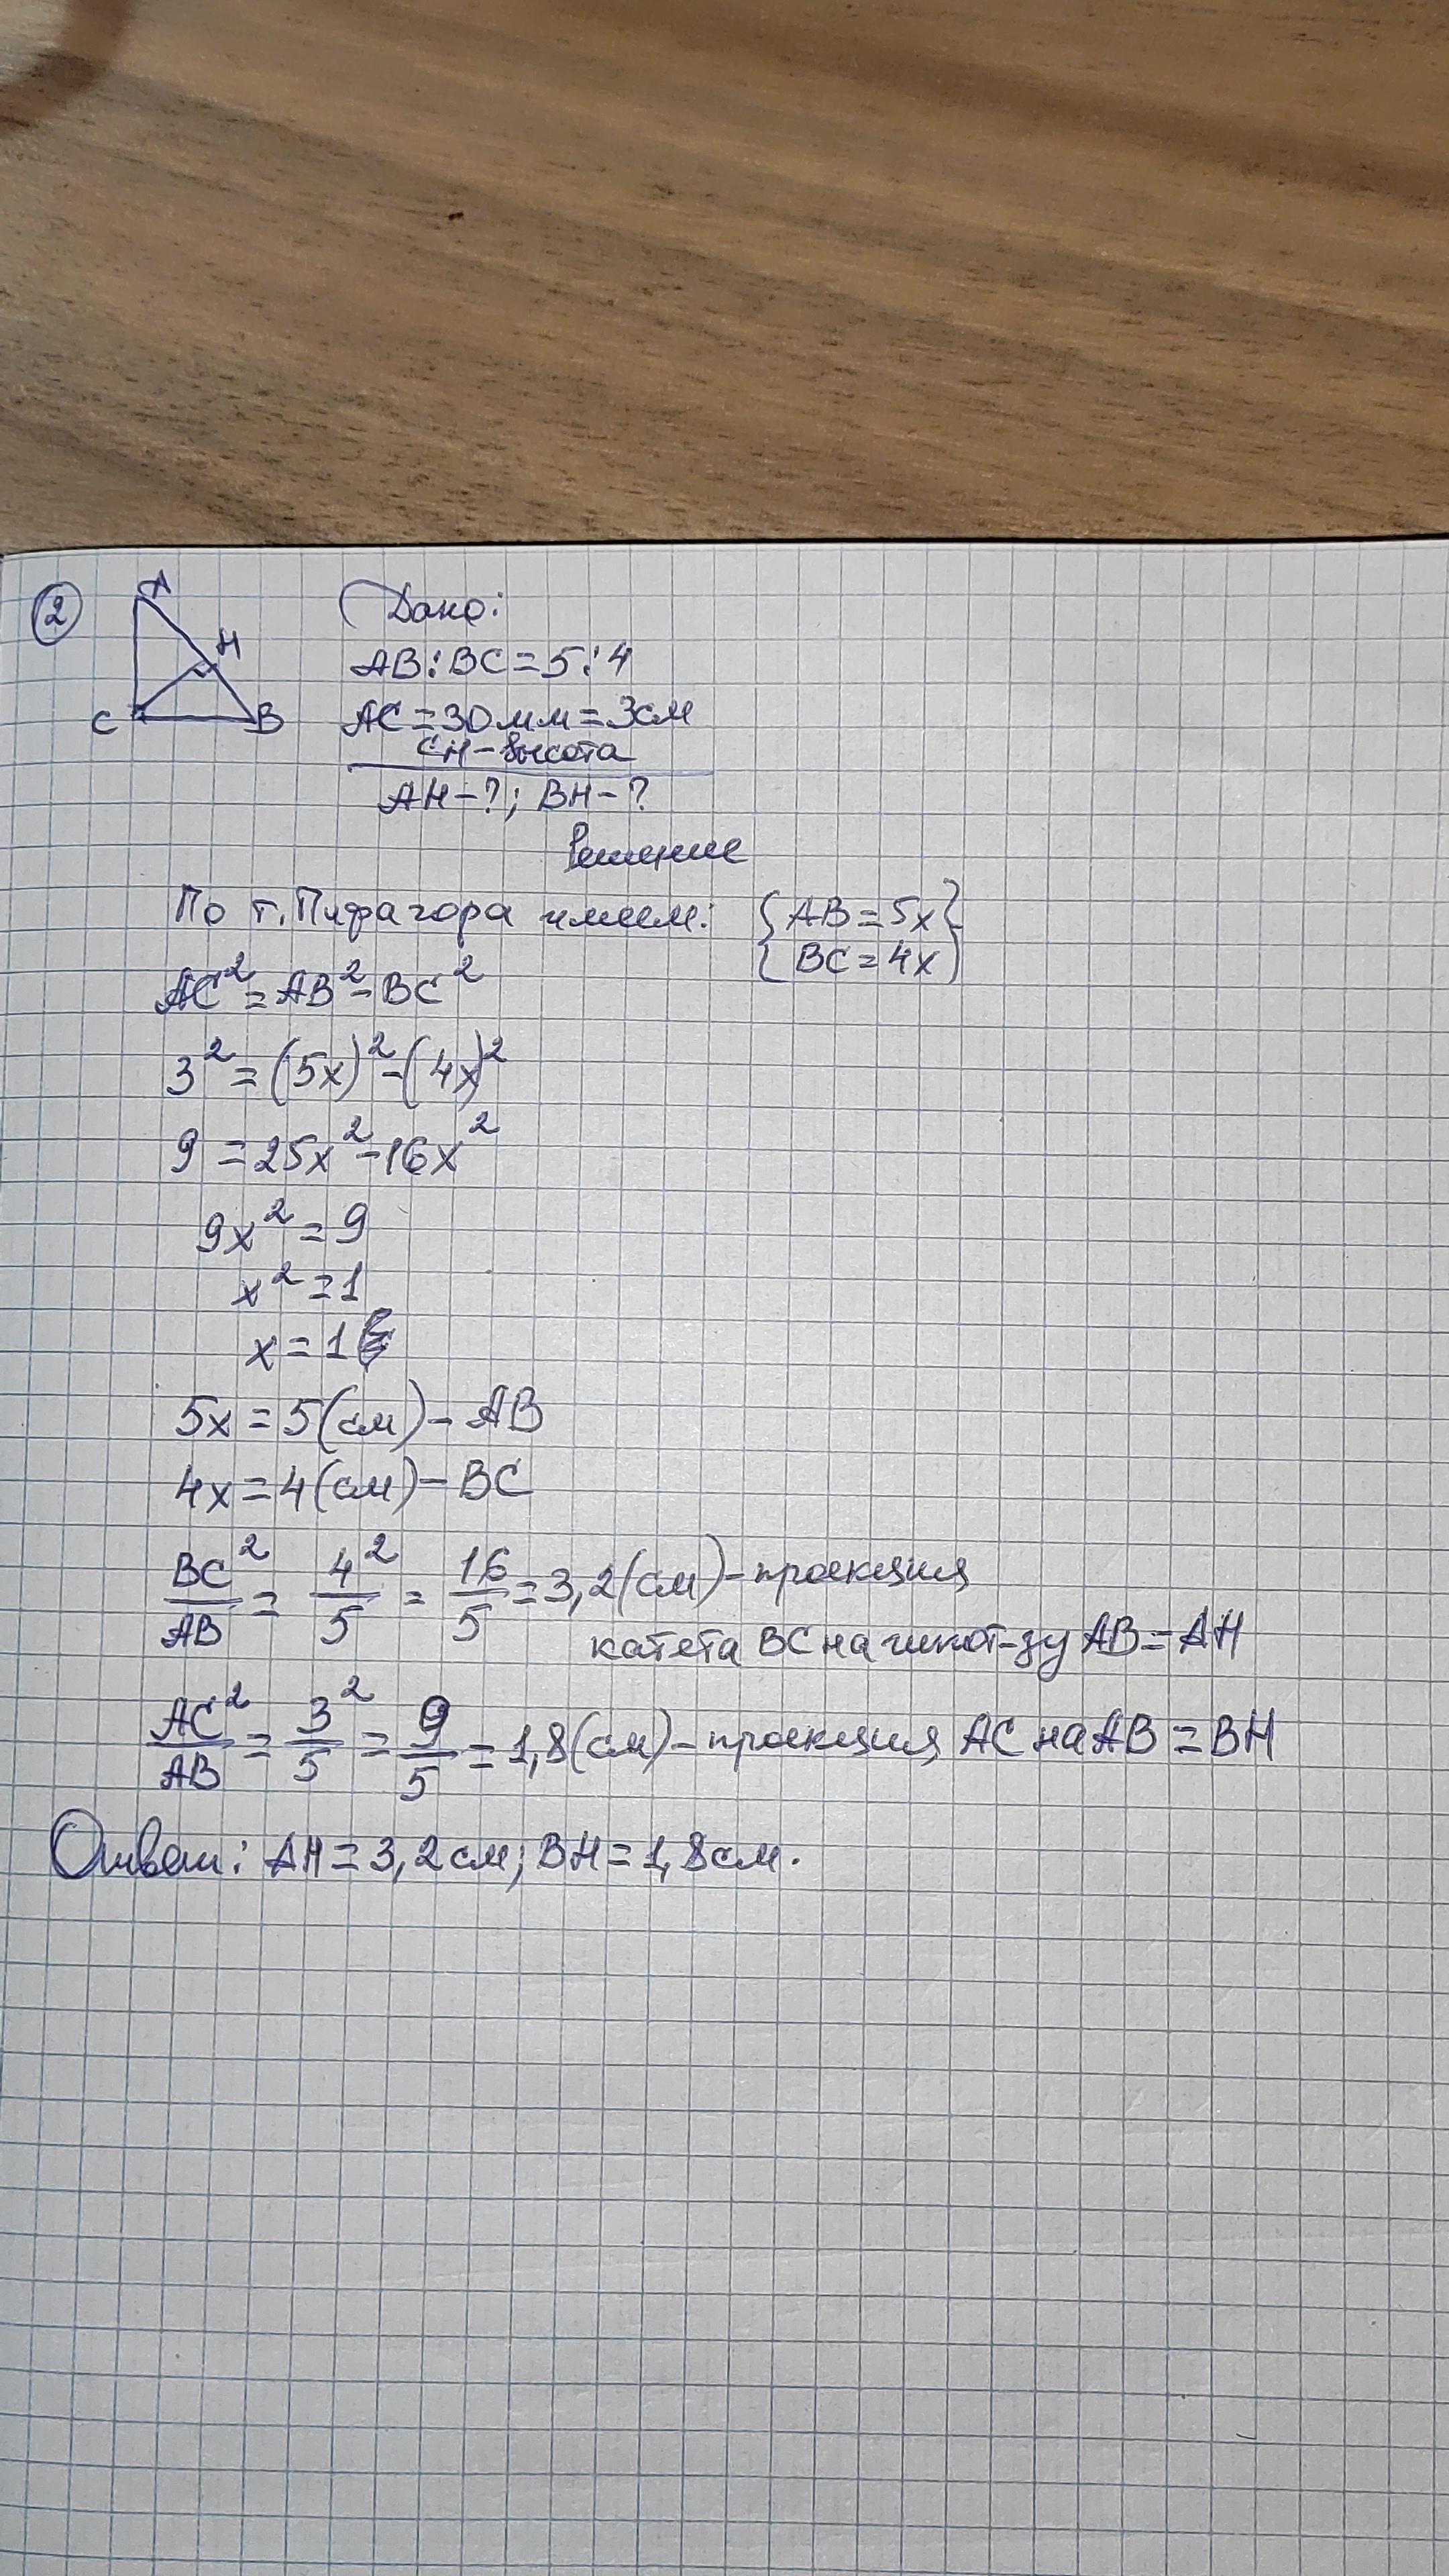 2
A
H
C
B
Дано:
AB:BC=5:4
AC=30мм=3см
CH-высота
AH-?; BH-?
Решение
По т. Пифагора имеем: {AB=5x}
{BC=4x}
AC²=AB²-BC²
3²=(5x)²-(4x)²
9=25x²-16x²
9x²=9
x²=1
x=1
5x=5(см)-AB
4x=4(см)-BC
BC²/AB=4²/5=16/5=3,2(см)-проекция
катета BC на гипот-зу AB=AH
AC²/AB=3²/5=9/5=1,8(см)-проекция AC на AB=BH
Ответ: AH=3,2см; BH=1,8см.